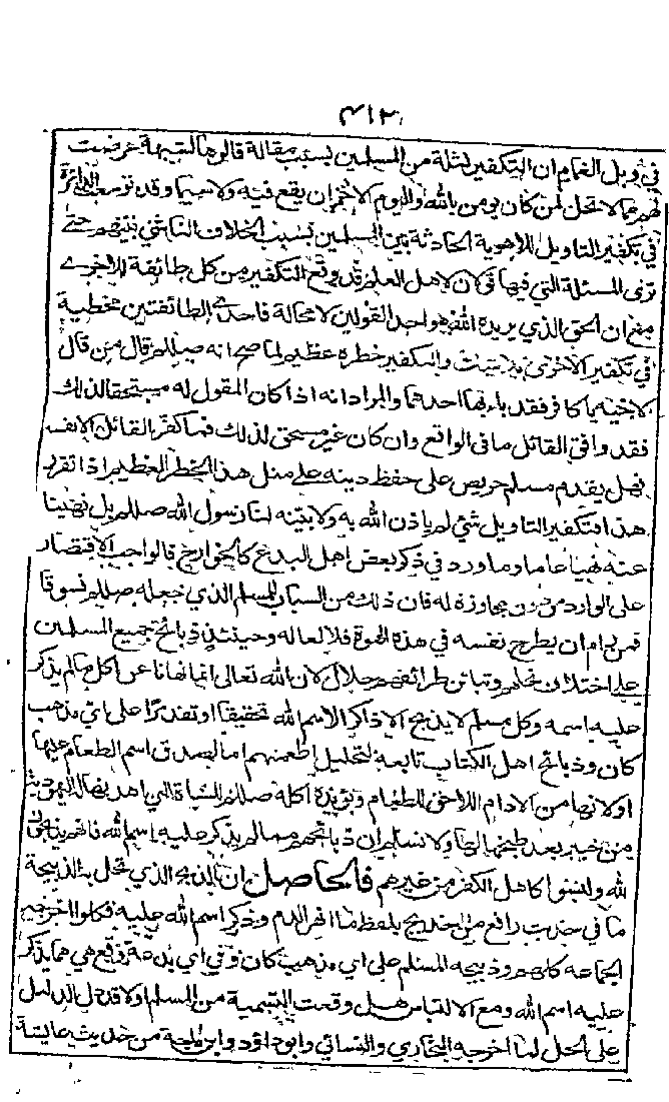 ٤١٢
في وبل الغمام ان التكفير لثلة من المسلمين بسبب مقالة قالوها لشبهة عرضت
لهم مما لا تحل لمن كان يومن بالله واليوم الاخر ان يقع فيه ولا سيما وقد توسعت الدائرة
في تكفير التاويل للاهوية الحادثة بين المسلمين بسبب الخلاف الناشي بينهم حتى
ترى المسئلة التي فيها قولان لاهل العلم قد وقع التكفير من كل طائفة للاخرى
مع ان الحق الذي يريده الله هو احد القولين لا محالة فاحدى الطائفتين مخطية
في تكفير الاخرى والتكفير خطره عظيم لما صح انه صللم قال من قال
لاخيه يا كافر فقد باء بها احدهما والمراد انه اذا كان المقول له مستحقا لذلك
فقد وافق القائل ما في الواقع وان كان غير مستحق لذلك فما كفر القائل الا نفسه
فهل يقدم مسلم حريص على حفظ دينه على مثل هذا الخطر العظيم اذا تقرر
هذا فتكفير التاويل شيء لم ياذن الله به ولا بينه لنا رسول الله صللم بل نهينا
عنه نهيا عاما وما ورد في ذكر بعض اهل البدع كالخوارج فالواجب الاقتصار
على الوارد من دون مجاوزة له فان ذلك من السباب للمسلم الذي جعله صللم فسوقا
فمن رام ان يطرح نفسه في هذه الهوة فلا لعا له وحينئذ ذبائح جميع المسلمين
على اختلاف نحلهم وتباين طرائقهم حلال لان الله تعالى انما نهانا عن اكل ما لم يذكر
عليه اسمه وكل مسلم لا يذبح الا ذاكرا لاسم الله تحقيقا او تقديرا على اي مذهب
كان وذبائح اهل الكتاب تابعة لتحليل اطعمتهم اما لصدق اسم الطعام عليها
او لانها من الادام اللاحق للطعام ويؤيده اكله صللم للشاة التي اهدتها اليهودية
من خيبر بعد طبخها لها ولا نسلم ان ذبائحهم مما لم يذكر عليه اسم الله فانهم يذبحون
لله وليسوا كاهل الكفر من غيرهم فالحاصل ان الذبح الذي تحل به الذبيحة
ما في حديث رافع بن خديج بلفظ ما انهر الدم وذكر اسم الله عليه فكلوا اخرجه
الجماعة كلهم وذبيحة المسلم على اي مذهب كان وفي اي بدعة وقع هي مما يذكر
عليه اسم الله ومع الالتباس هل وقعت التسمية من المسلم او لا قد دل الدليل
على الحل لما اخرجه البخاري والنسائي وابو داؤد وابن ماجة من حديث عايشة